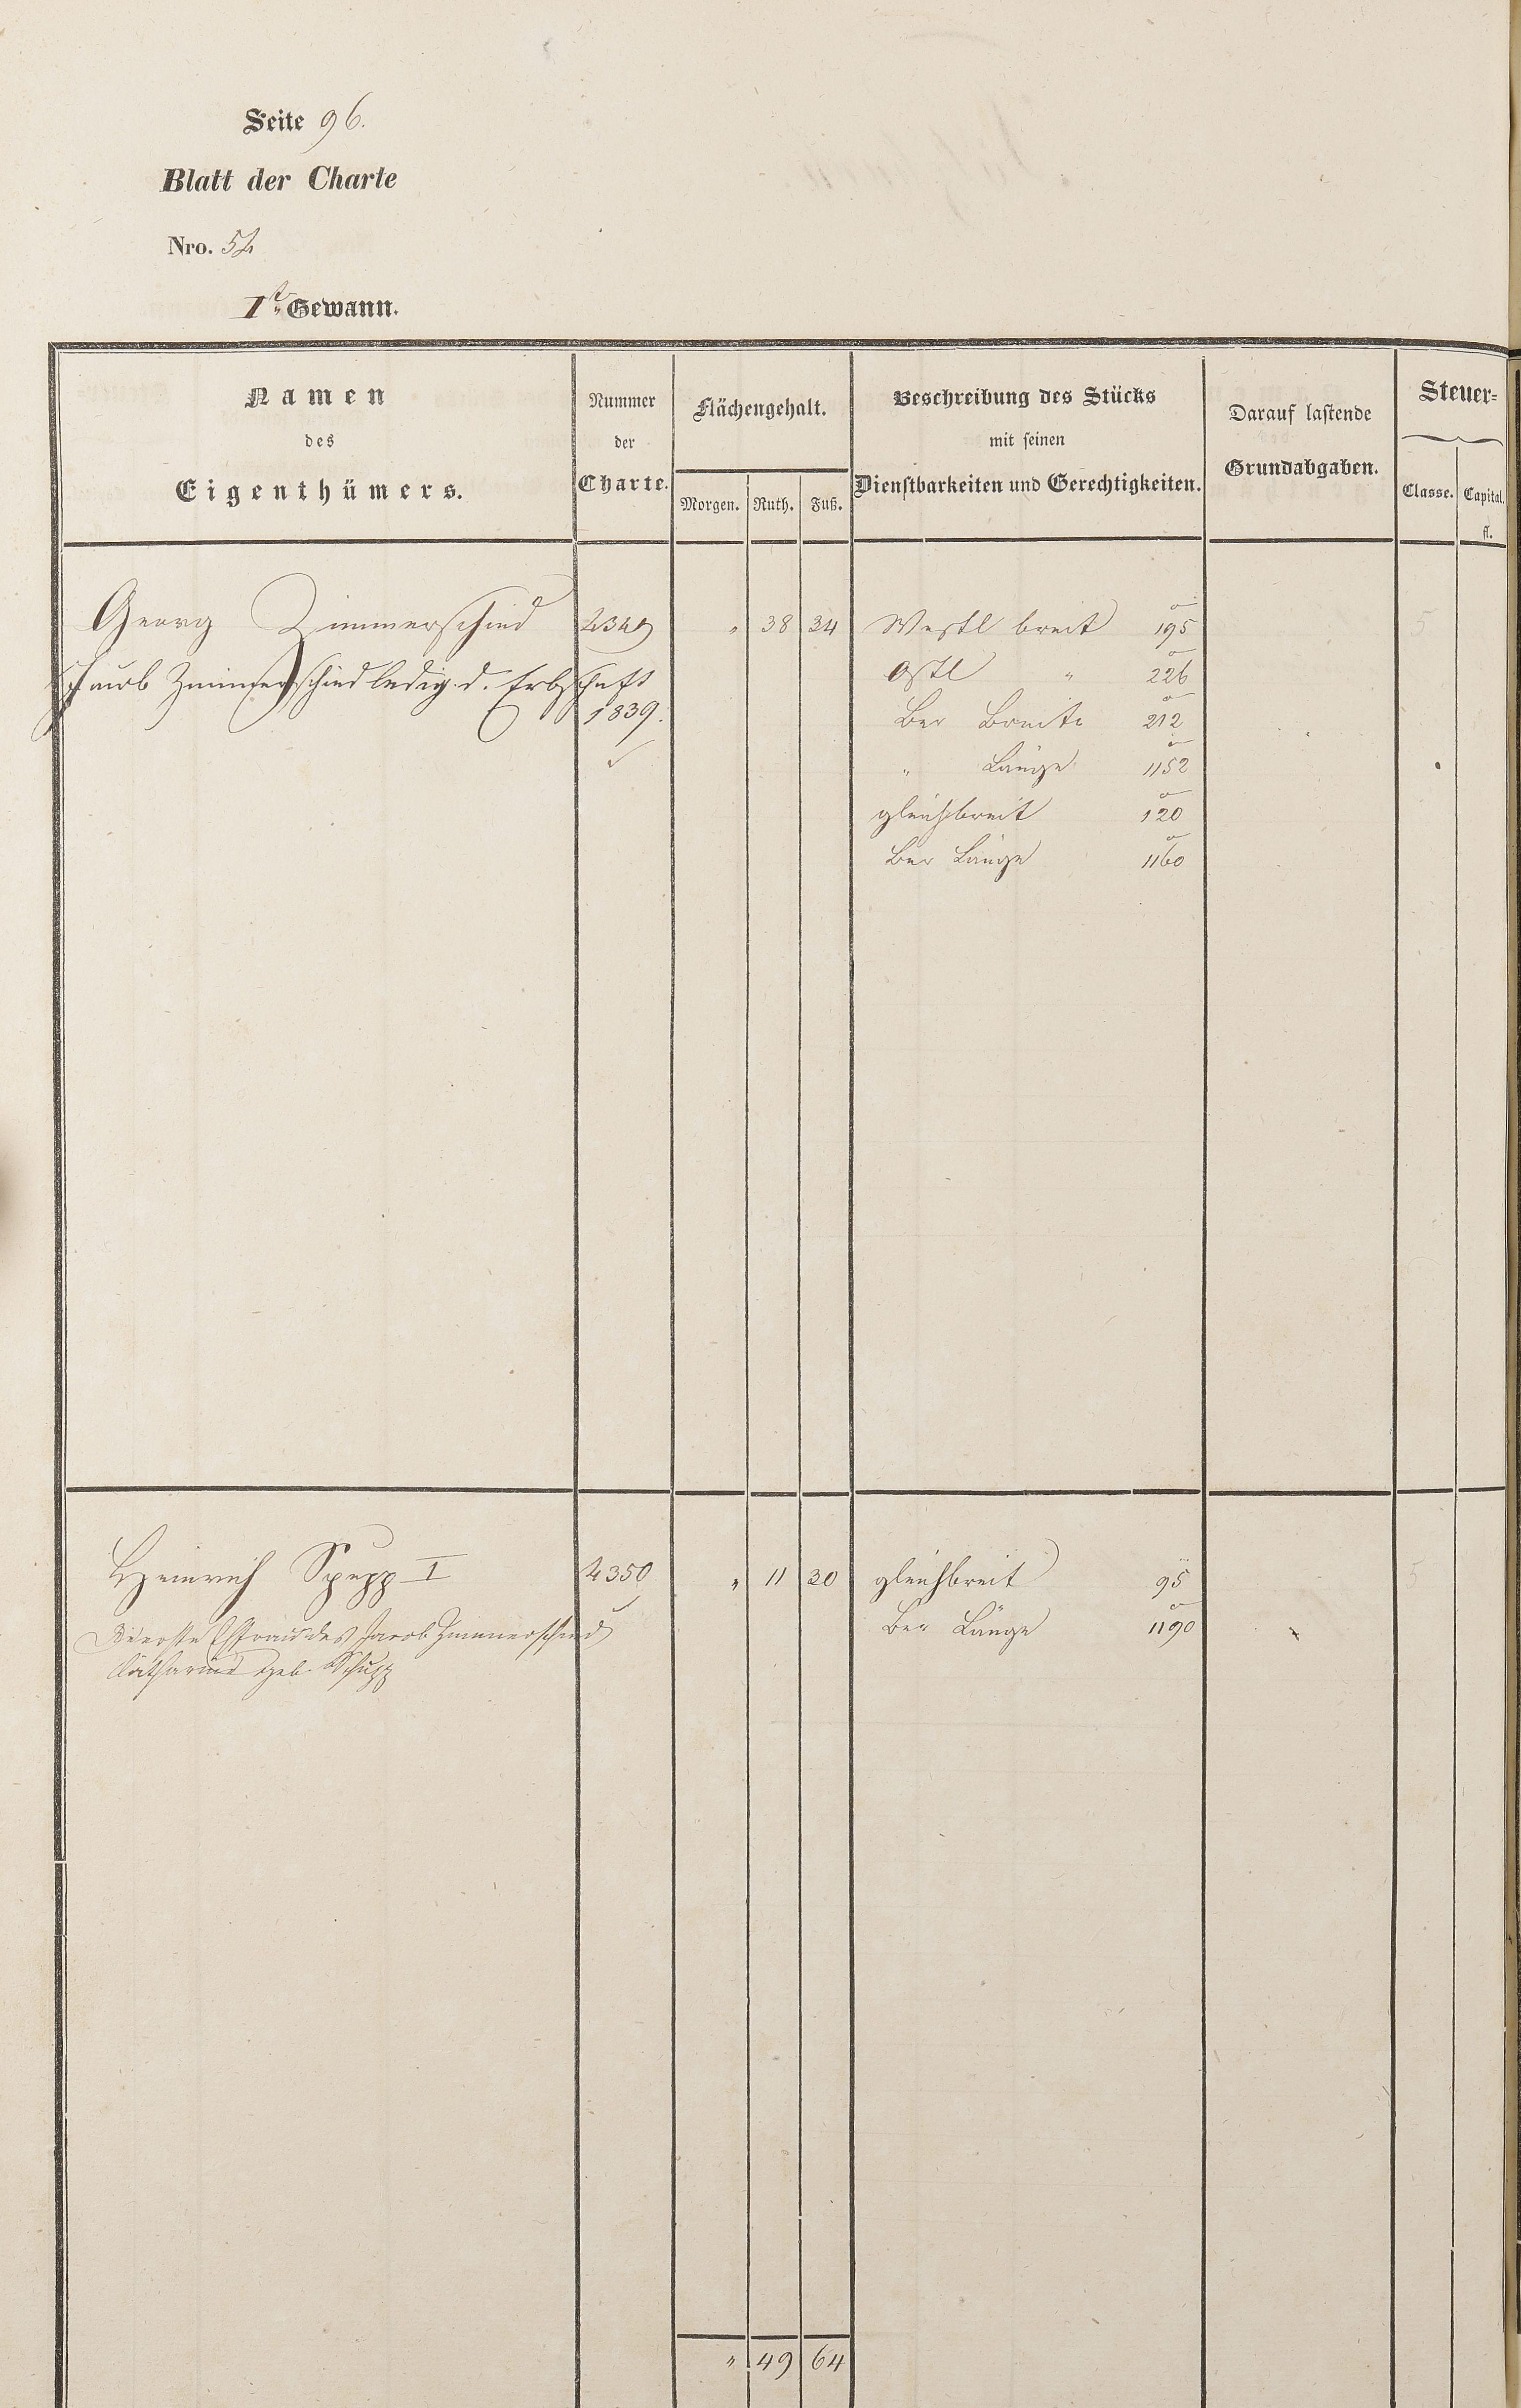 Seite 96.
Blatt der Charte
Nro. 52
1te Gewann.
Namen des Eigenthümers.
Nummer der Charte.
Flächengehalt.
Morgen. Ruth. Fuß.
Beschreibung des Stücks mit seinen Dienstbarkeiten und Gerechtigkeiten.
Darauf lastende Grundabgaben.
Steuer=
Classe. Capital. fl.
Georg Zimmerschied 2349 " 38 34 Westl breit 195 5
Jacob Zimmerschied ledig d. Erbschaft Ostl " 226
1839. Ber Breite 212
" Länge 1152
gleichbreit 120
Ber Länge 1160
Heinrich Schupp I 2350 " 11 30 gleichbreit 95 5
Ehfrau des Jacob Zimmerschied Ber Länge 1190
Catharine geb. Schupp
" 49 64